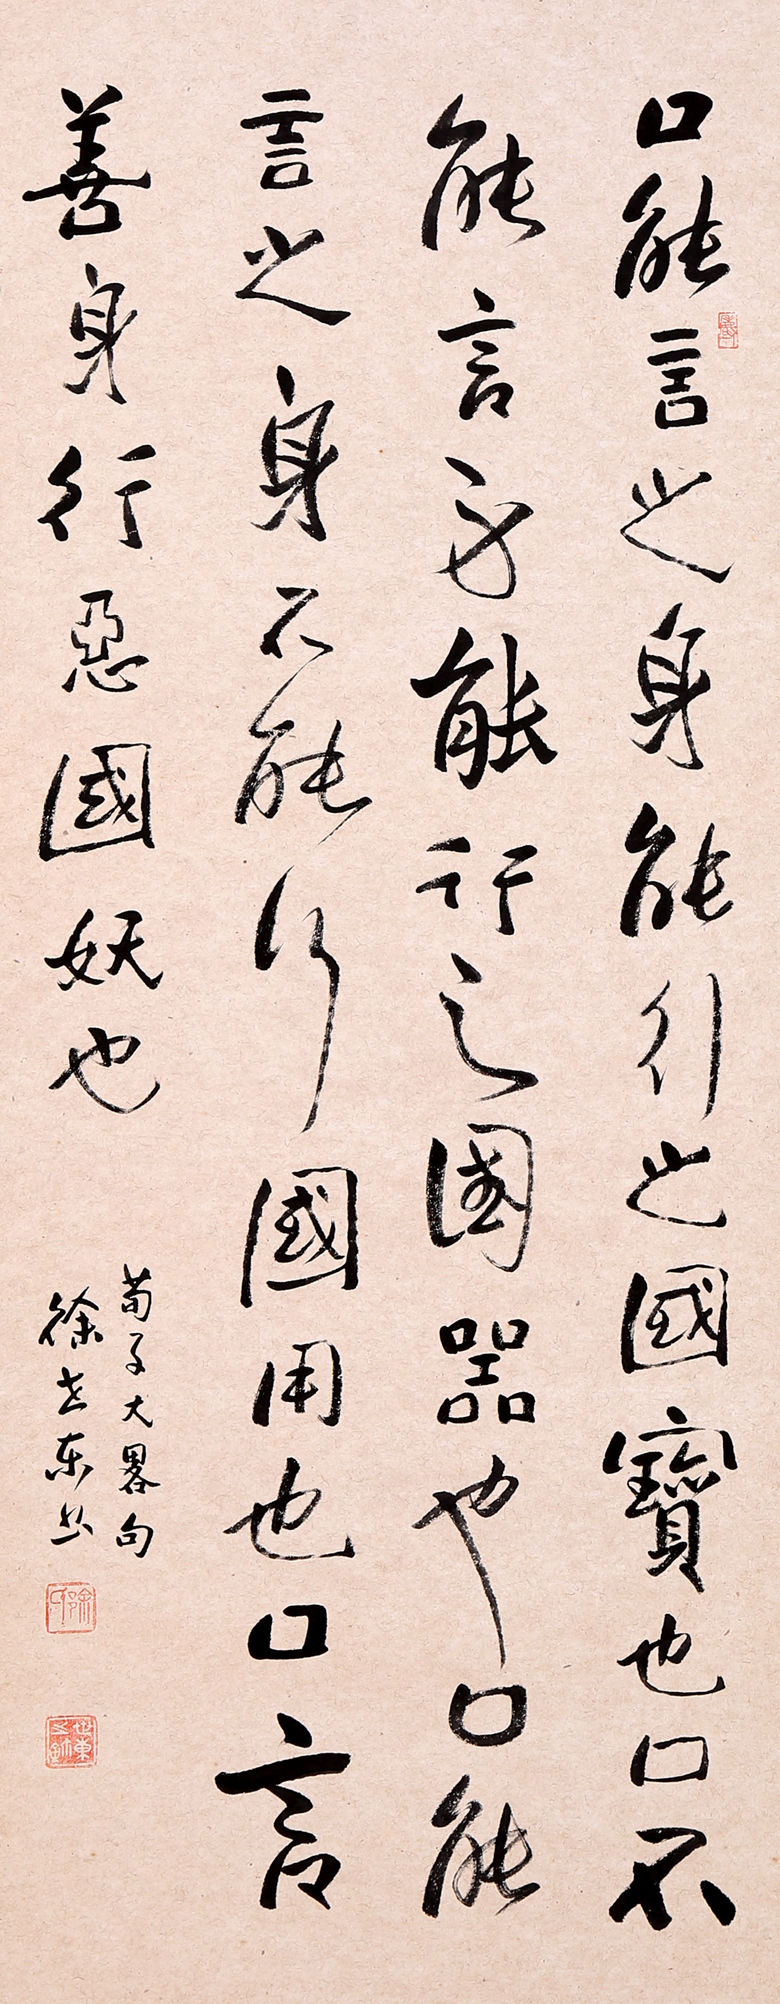 口能言之身能行之國寶也口不
能言身能行之國器也口能
言之身不能行國用也口言
善身行惡國妖也
荀子大畧句
徐世东书
徐
世東